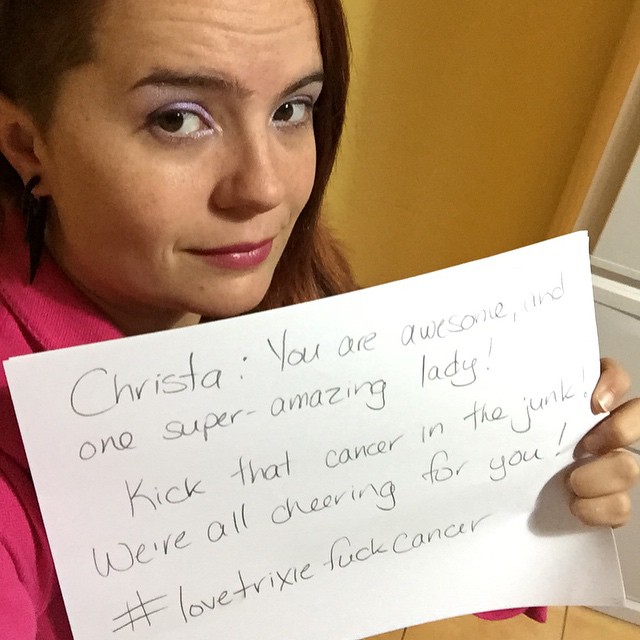 Christa: You are awesome, and
one super-amazing lady!
Kick that cancer in the junk!
We're all cheering for you!
#lovetrixiefuckcancer